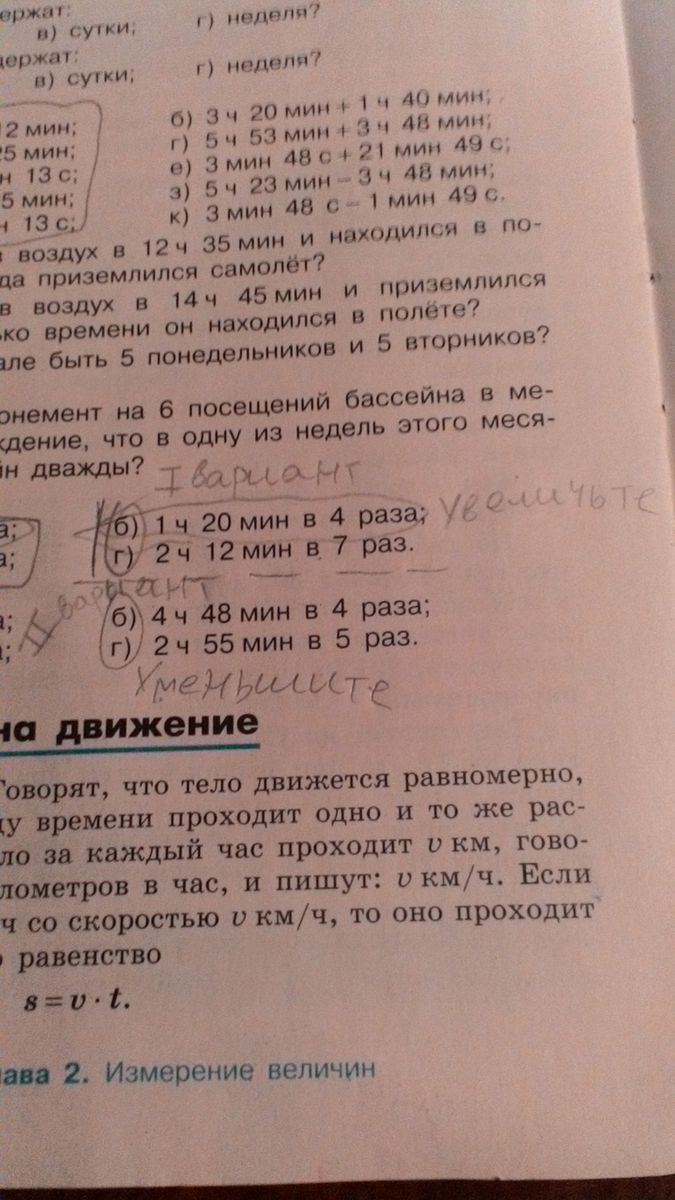 держат:
в) сутки; г) неделя?
держат:
в) сутки; г) неделя?
12 мин; б) 3 ч 20 мин + 1 ч 40 мин;
25 мин; г) 5 ч 53 мин + 3 ч 48 мин;
н 13 с; е) 3 мин 48 с + 21 мин 49 с;
5 мин; з) 5 ч 23 мин − 3 ч 48 мин;
н 13 с; к) 3 мин 48 с − 1 мин 49 с.
в воздух в 12 ч 35 мин и находился в по-
да приземлился самолёт?
в воздух в 14 ч 45 мин и приземлился
ько времени он находился в полёте?
але быть 5 понедельников и 5 вторников?
онемент на 6 посещений бассейна в ме-
ждение, что в одну из недель этого меся-
йн дважды?
I вариант
а; б) 1 ч 20 мин в 4 раза; увеличьте
а; г) 2 ч 12 мин в 7 раз.
II вариант
а; б) 4 ч 48 мин в 4 раза;
а; г) 2 ч 55 мин в 5 раз.
Уменьшите
на движение
Говорят, что тело движется равномерно,
цу времени проходит одно и то же рас-
ло за каждый час проходит v км, гово-
лометров в час, и пишут: v км/ч. Если
ч со скоростью v км/ч, то оно проходит
о равенство
s = v · t.
лава 2. Измерение величин